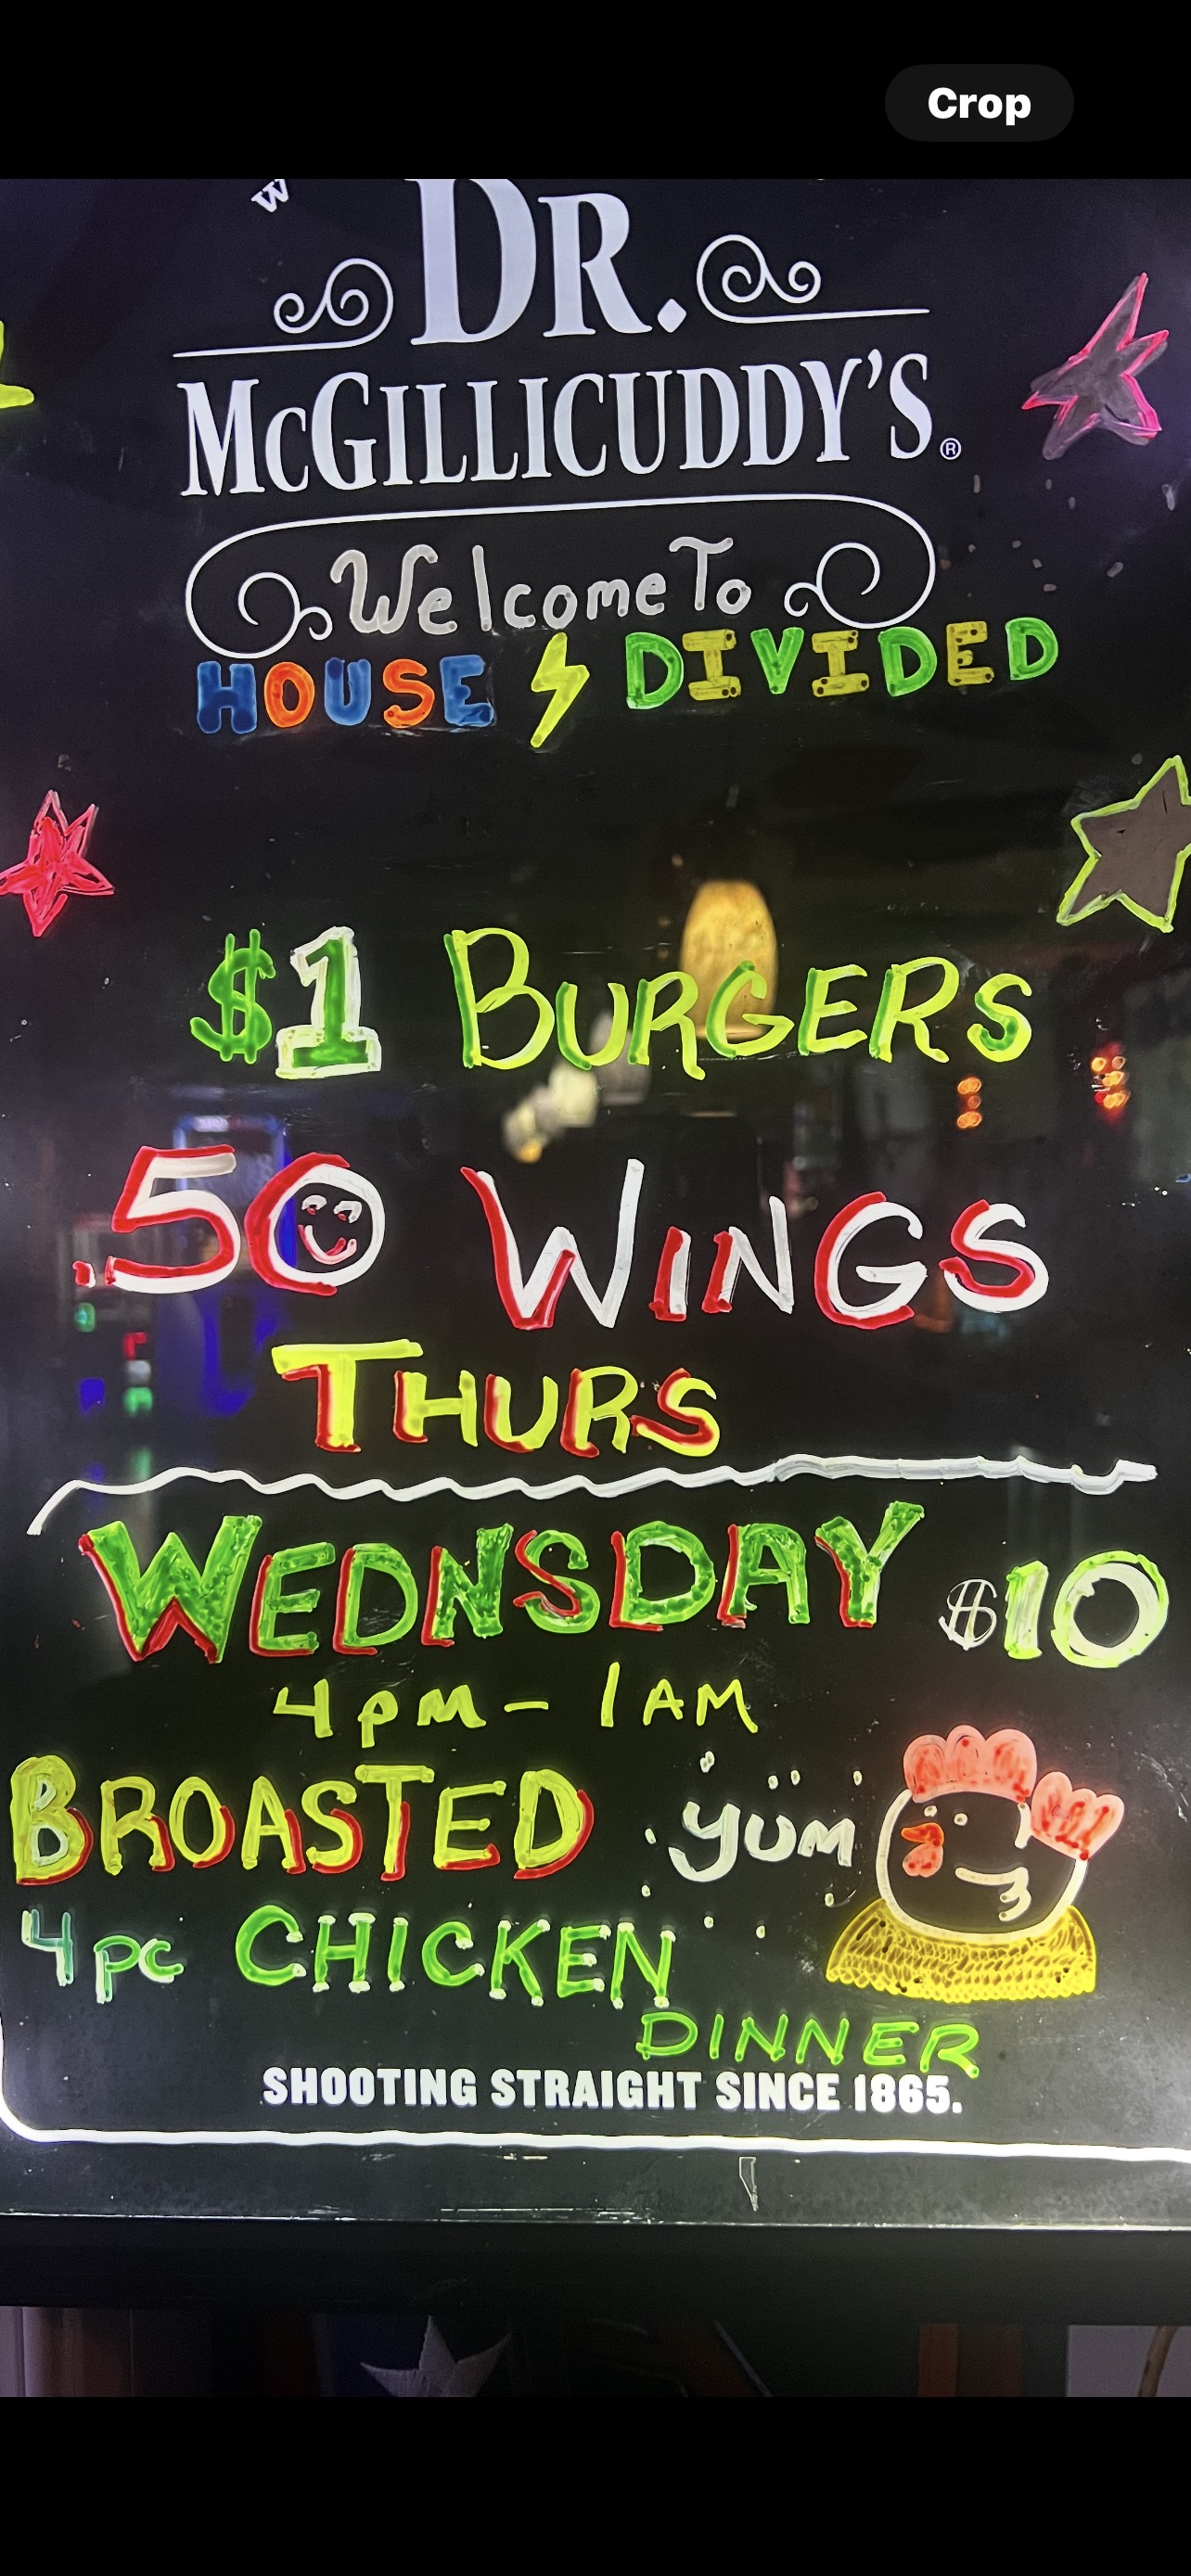 Crop
W
DR.
McGILLICUDDY'S®
Welcome To
HOUSE DIVIDED
$1 BURGERS
.50 WINGS
THURS
WEDNSDAY $10
4pm - 1AM
BROASTED yum
4pc CHICKEN
DINNER
SHOOTING STRAIGHT SINCE 1865.